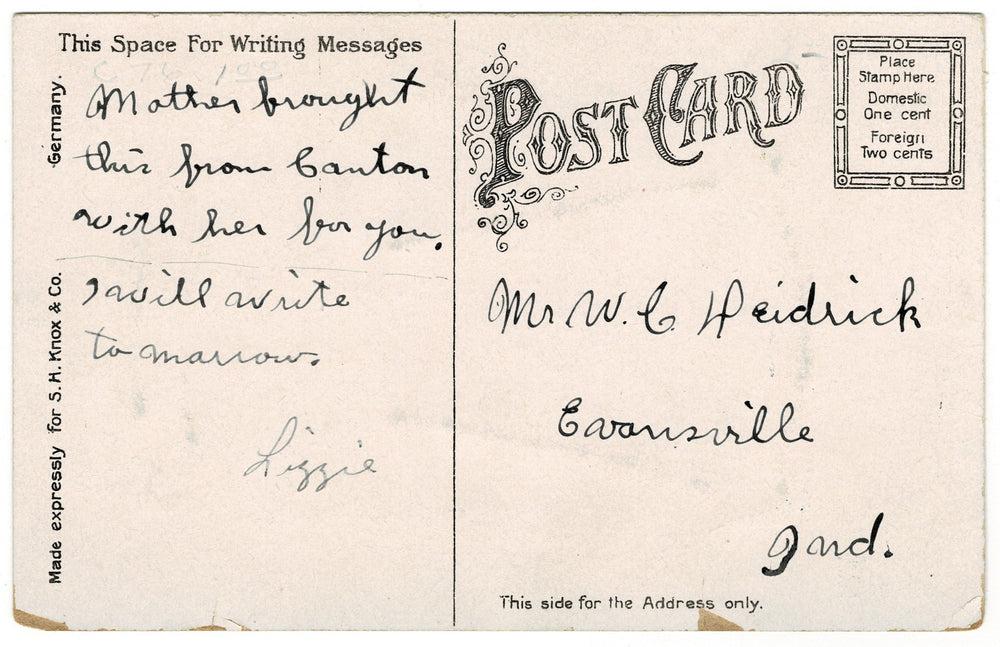 This Space For Writing Messages
Mother brought
this from Canton
with her for you.
I will write
to marrow.
Lizzie
Germany.
Made expressly for S. H. Knox & Co.
POST CARD
Place
Stamp Here
Domestic
One cent
Foreign
Two cents
Mr W. C. Heidrick
Evansville
Ind.
This side for the Address only.